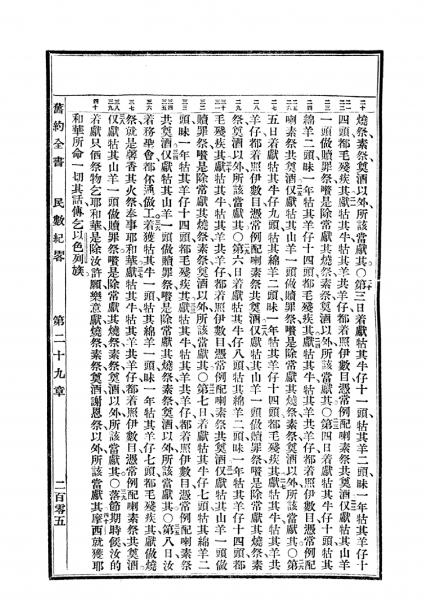 燒祭素祭奠酒以外所該當獻其〇第三日着獻牯牛仔十一頭牯其羊二頭昧一年牯其羊仔十
四頭都毛殘疾其獻牯其牛牯其羊共羊仔都着照伊數目憑常例配喇素祭共奠酒仅獻牯其山羊
一頭做贖罪祭嚽是除常獻其燒祭素祭奠酒以外所該當獻其〇第四日着獻牯其牛仔十頭牯其
綿羊二頭昧一年牯其羊仔十四頭都毛殘疾其獻牯其牛牯其羊共羊仔都着照伊數目憑常例配
喇素祭共奠酒仅獻牯其山羊一頭做贖罪祭嚽是除常獻其燒祭素祭奠酒以外所該當獻其〇第
五日着獻牯其牛仔九頭牯其綿羊二頭昧一年牯其羊仔十四頭都毛殘疾其獻牯其牛牯其羊共
羊仔都着照伊數目憑常例配喇素祭共奠酒仅獻牯其山羊一頭做贖罪祭嚽是除常獻其燒祭素
祭奠酒以外所該當獻其〇第六日着獻牯其牛仔八頭牯其綿羊二頭昧一年牯其羊仔十四頭都
毛殘疾其獻牯其牛牯其羊共羊仔都着照伊數目憑常例配喇素祭共奠酒仅獻牯其山羊一頭做
贖罪祭嚽是除常獻其燒祭素祭奠酒以外所該當獻其〇第七日着獻牯其牛仔七頭牯其綿羊二
頭昧一年牯其羊仔十四頭都毛殘疾其獻牯其牛牯其羊共羊仔都着照伊數目憑常例配喇素祭
共奠酒仅獻牯其山羊一頭做贖罪祭嚽是除常獻其燒祭素祭奠酒以外所該當獻其〇第八日汝
着務聖會都伓通做工着獲牯其牛一頭牯其綿羊一頭昧一年牯其羊仔七頭都毛殘疾其獻做燒
祭就是馨香其火祭奉事耶和華獻牯其牛牯其羊共羊仔都着照伊數目憑常例配喇素祭共奠酒
仅獻牯其山羊一頭做贖罪祭嚽是除常獻其燒祭素祭奠酒以外所該當獻其〇落節期時候汝的
着獻只價祭物乞耶和華是除汝許願樂意獻燒祭素祭奠酒謝恩祭以外所該當獻其摩西就獲耶
和華所命一切其話傳乞以色列族
舊約全書 民數紀畧 第二十九章 二百零五